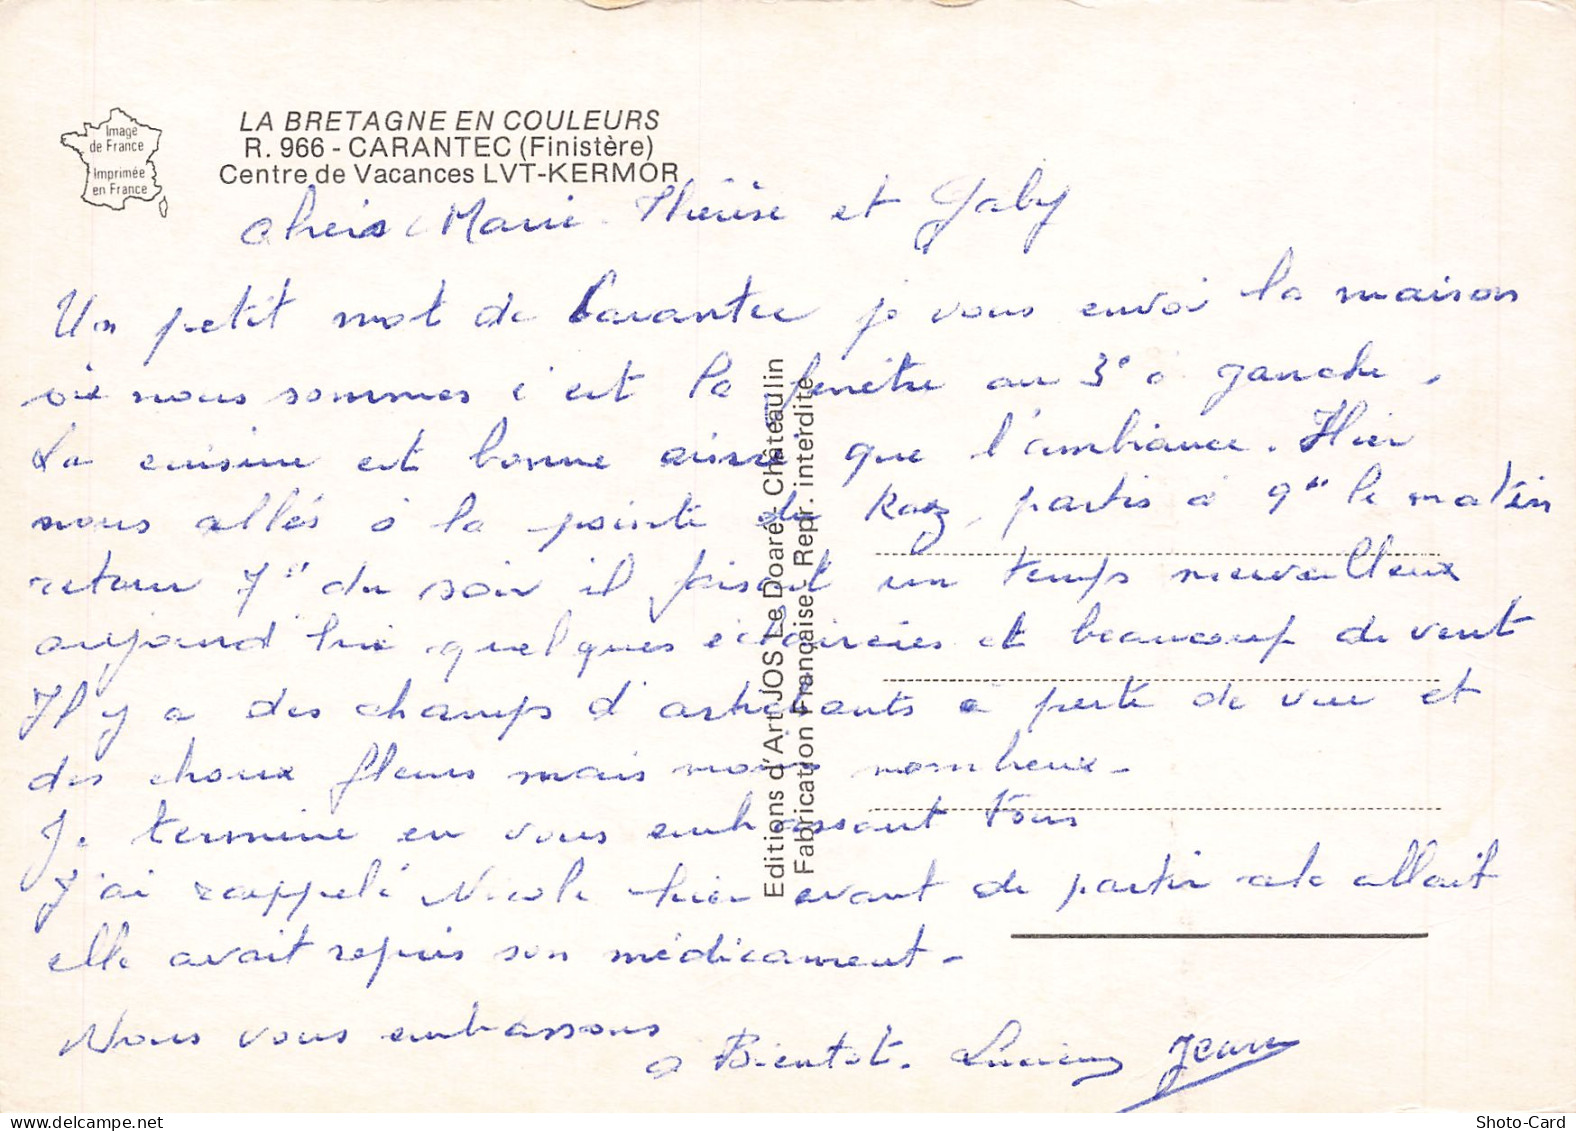 Image
de France
Imprimée
en France
LA BRETAGNE EN COULEURS
R. 966 - CARANTEC (Finistère)
Centre de Vacances LVT-KERMOR
Chers Marie-Thérèse et Gaby
Un petit mot de Carantec je vous envoi la maison
où nous sommes c'est la fenêtre au 3e à gauche.
La cuisine est bonne ainsi que l'ambiance. Hier
nous allés à la pointe du Raz, partis à 9h le matin
retour 7h du soir il faisait un temps merveilleux
aujourd'hui quelques éclaircies et beaucoup de vent
Il y a des champs d'artichauts à perte de vue et
des choux fleurs mais moins nombreux-
Je termine en vous embrassant tous
J'ai rappelé Nicole hier avant de partir allait
elle avait repris son médicament-
Nous vous embrassons
a Bientot. Lucienne Jean
Editions d'Art JOS Le Doaré - Châteaulin
Fabrication Française - Repr. interdite
Shoto-Card